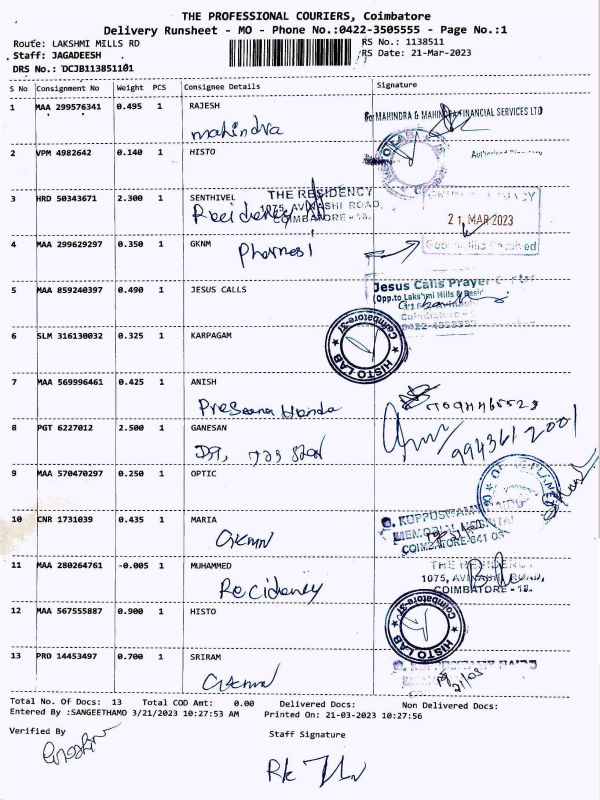 THE PROFESSIONAL COURIERS, Coimbatore
Delivery Runsheet - MO - Phone No.:0422-3505555 - Page No.:1
Route: LAKSHMI MILLS RD RS No.: 1138511
Staff: JAGADEESH RS Date: 21-Mar-2023
DRS No.: DCJB113851101
S No Consignment No Weight PCS Consignee Details Signature
1 MAA 299576341 0.495 1 RAJESH
For MAHINDRA & MAHINDRA FINANCIAL SERVICES LTD
mahindra
2 VPM 4982642 0.140 1 HISTO
3 HRD 50343671 2.300 1 SENTHIVEL
THE RESIDENCY
1075, AVINASHI ROAD,
COIMBATORE - 18.
Recidency
21 MAR 2023
4 MAA 299629297 0.350 1 GKNM
5 MAA 859240397 0.490 1 JESUS CALLS
Jesus Calls Prayer
(Opp.to Lakshmi Mills &
6 SLM 316130032 0.325 1 KARPAGAM
Coimbatore-37
HISTO LAB
7 MAA 569996461 0.425 1 ANISH
8 PGT 6227012 2.500 1 GANESAN
9943612001
9 MAA 570470297 0.250 1 OPTIC
10 CNR 1731039 0.435 1 MARIA
G. KUPPUSWAMY NAIDU
MEMORIAL HOSPITAL
COIMBATORE-641 037
11 MAA 280264761 -0.005 1 MUHAMMED
THE RESIDENCY
1075, AVINASHI ROAD,
COIMBATORE - 18.
Recidency
12 MAA 567555887 0.900 1 HISTO
Coimbatore-37
HISTO LAB
13 PRO 14453497 0.700 1 SRIRAM
G. KUPPUSWAMY NAIDU
Total No. Of Docs: 13 Total COD Amt: 0.00 Delivered Docs: Non Delivered Docs:
Entered By :SANGEETHAMO 3/21/2023 10:27:53 AM Printed On: 21-03-2023 10:27:56
Verified By Staff Signature